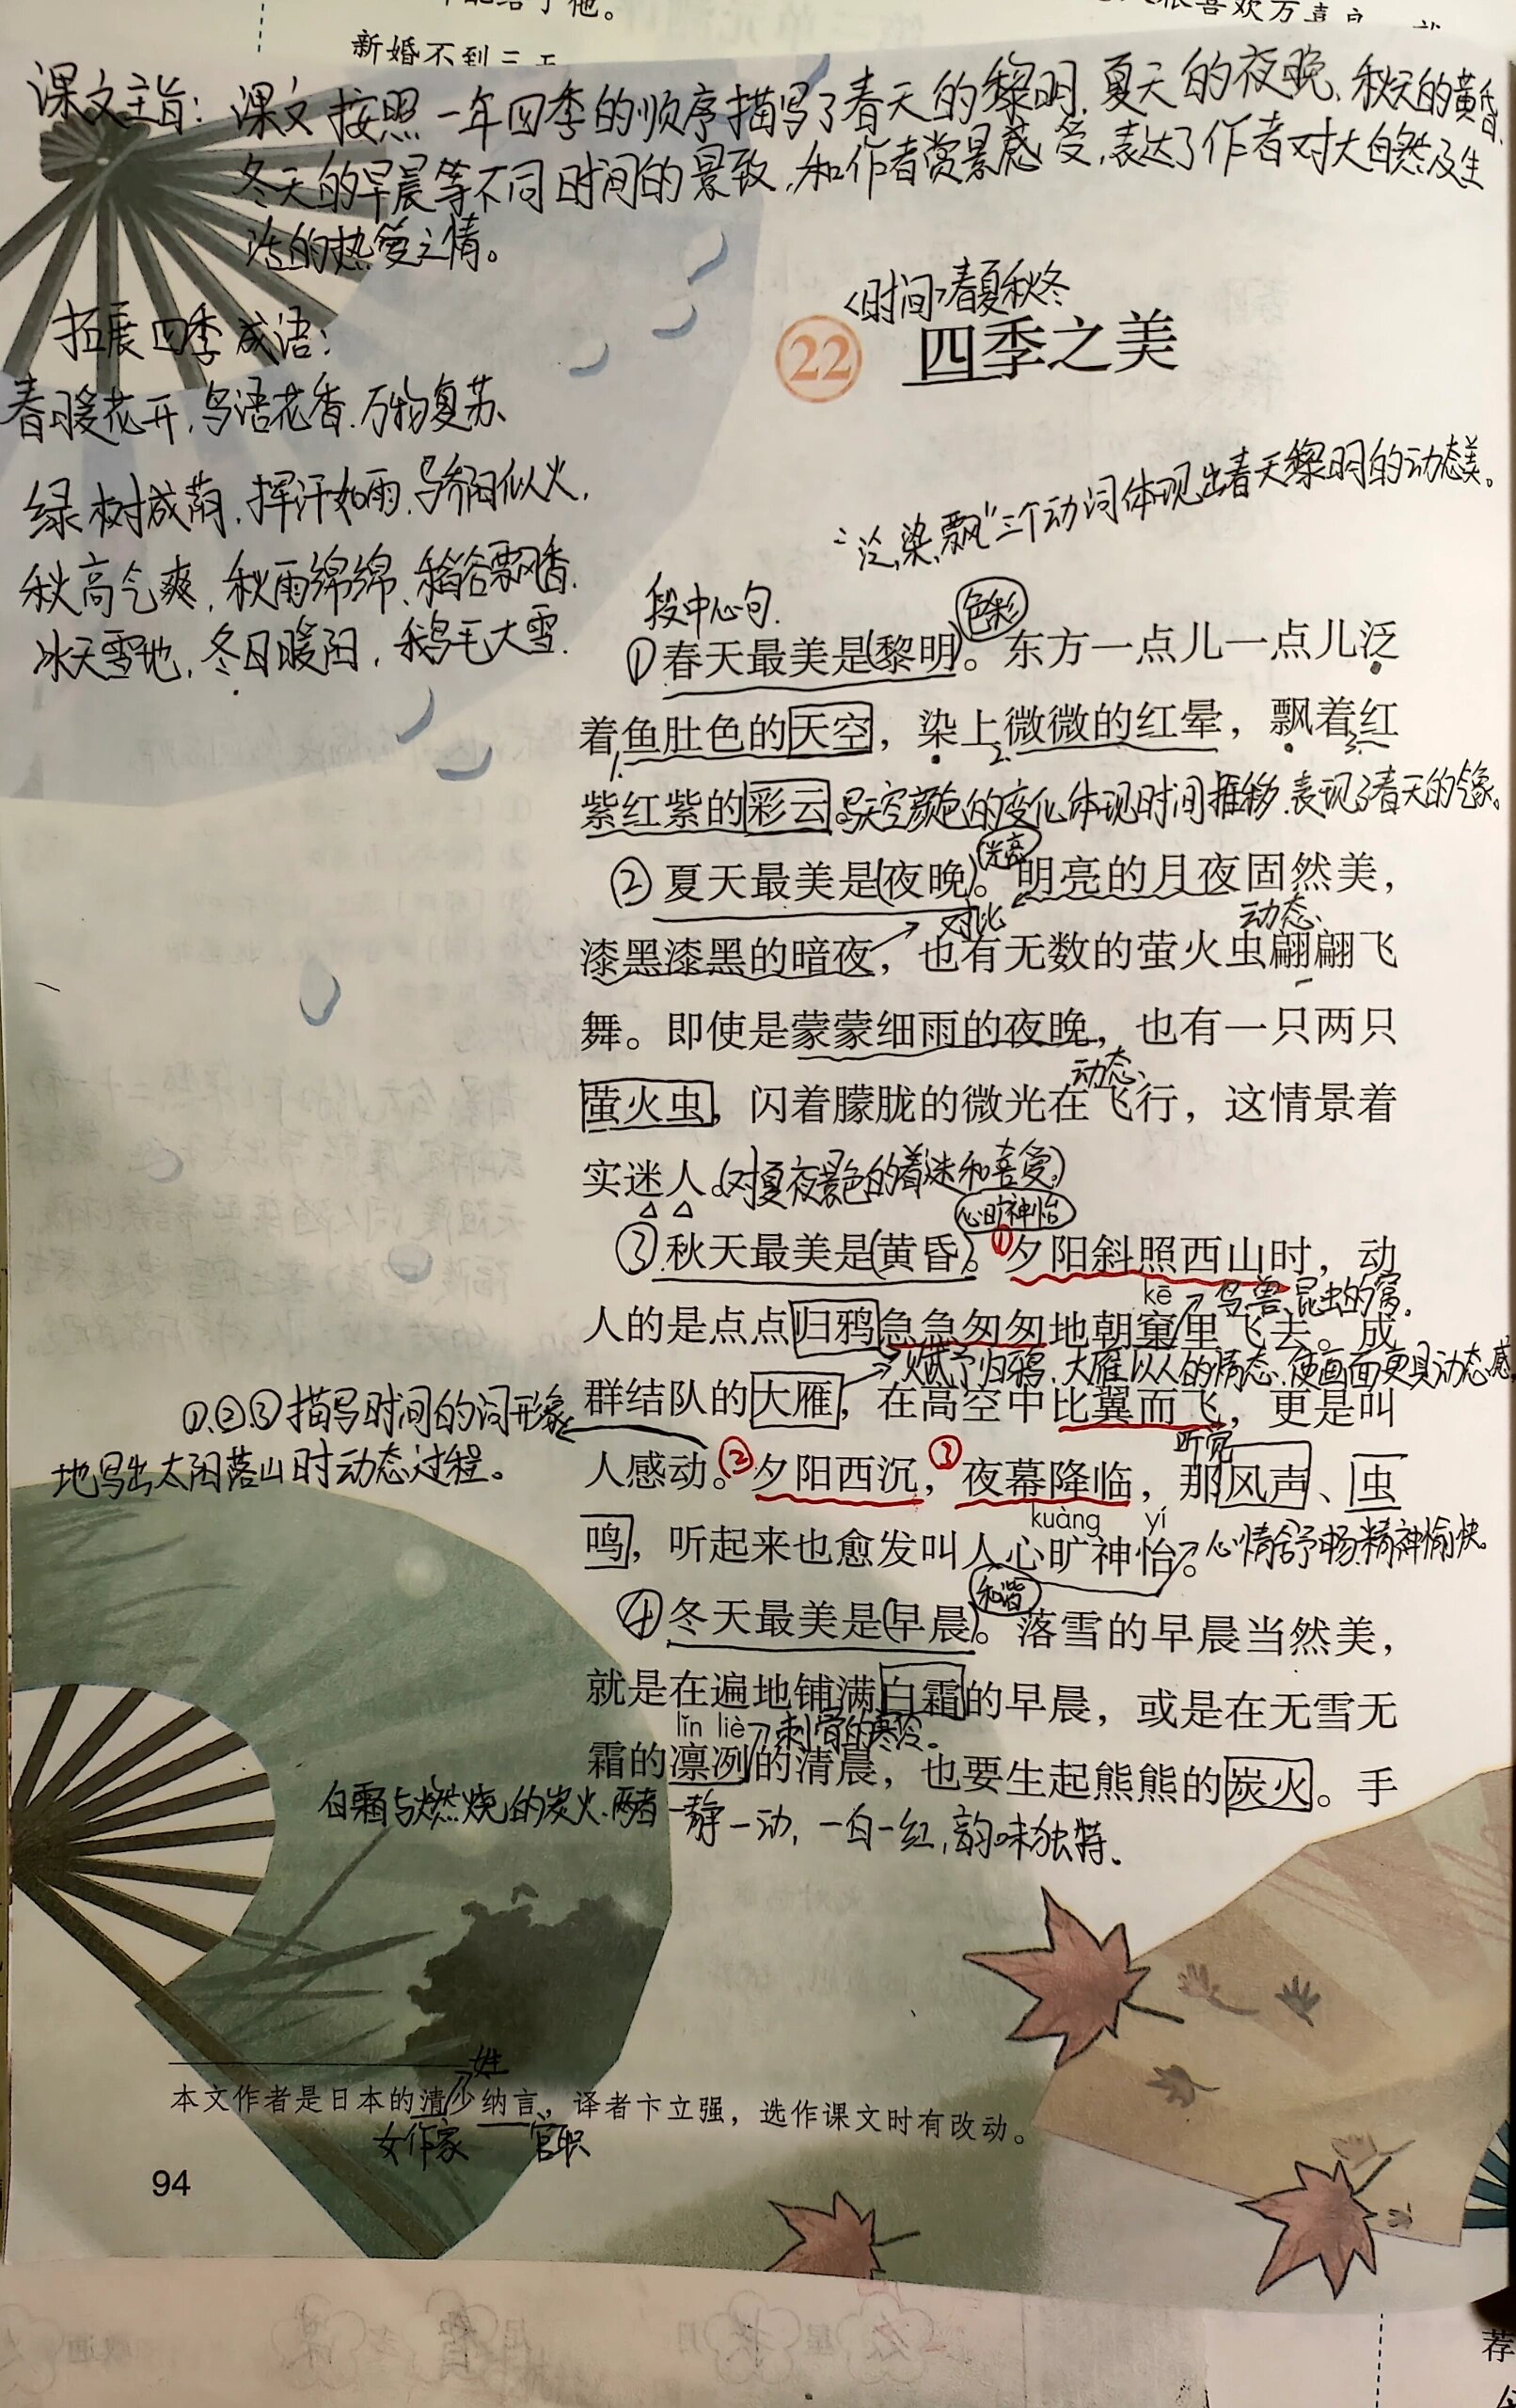 新婚不到三天
课文主旨：课文按照一年四季的顺序描写了春天的黎明、夏天的夜晚、秋天的黄昏、
冬天的早晨等不同时间的景致，和作者赏景感受，表达了作者对大自然及生
活的热爱之情。
<时间>春夏秋冬
22 四季之美
拓展四季成语：
春暖花开，鸟语花香、万物复苏、
绿树成荫，挥汗如雨，骄阳似火，
秋高气爽，秋雨绵绵、稻谷飘香.
冰天雪地，冬日暖阳，鹅毛大雪.
"泛、染、飘"三个动词体现出春天黎明的动态美。
段中心句.
色彩
①春天最美是(黎明)。东方一点儿一点儿泛
着鱼肚色的天空，染上微微的红晕，飘着红
1. 2. 3.
紫红紫的彩云。写天空颜色的变化体现时间推移.表现了春天的气象。
光亮
②夏天最美是(夜晚)。明亮的月夜固然美，
对比
动态、
漆黑漆黑的暗夜，也有无数的萤火虫翩翩飞
舞。即使是蒙蒙细雨的夜晚，也有一只两只
动态、
萤火虫，闪着朦胧的微光在飞行，这情景着
实迷人。(对夏夜景色的着迷和喜爱)
心旷神怡
③秋天最美是(黄昏)。①夕阳斜照西山时，动
kē 鸟兽、昆虫的窝.
人的是点点归鸦急急匆匆地朝窠里飞去。成
赋予归鸦、大雁以人的情态、使画面更具动态感
群结队的大雁，在高空中比翼而飞，更是叫
①、②③描写时间的词形象
地写出太阳落山时动态过程。
听觉
人感动。②夕阳西沉，③夜幕降临，那风声、虫
kuàng yí
鸣，听起来也愈发叫人心旷神怡。心情舒畅,精神愉快。
和谐
④冬天最美是(早晨)。落雪的早晨当然美，
就是在遍地铺满白霜的早晨，或是在无雪无
lǐn liè 刺骨的寒冷。
霜的凛冽的清晨，也要生起熊熊的炭火。手
白霜与燃烧的炭火、两者一静一动，一白一红，韵味独特、
姓
本文作者是日本的清少纳言，译者卞立强，选作课文时有改动。
女作家 官职
94
荐